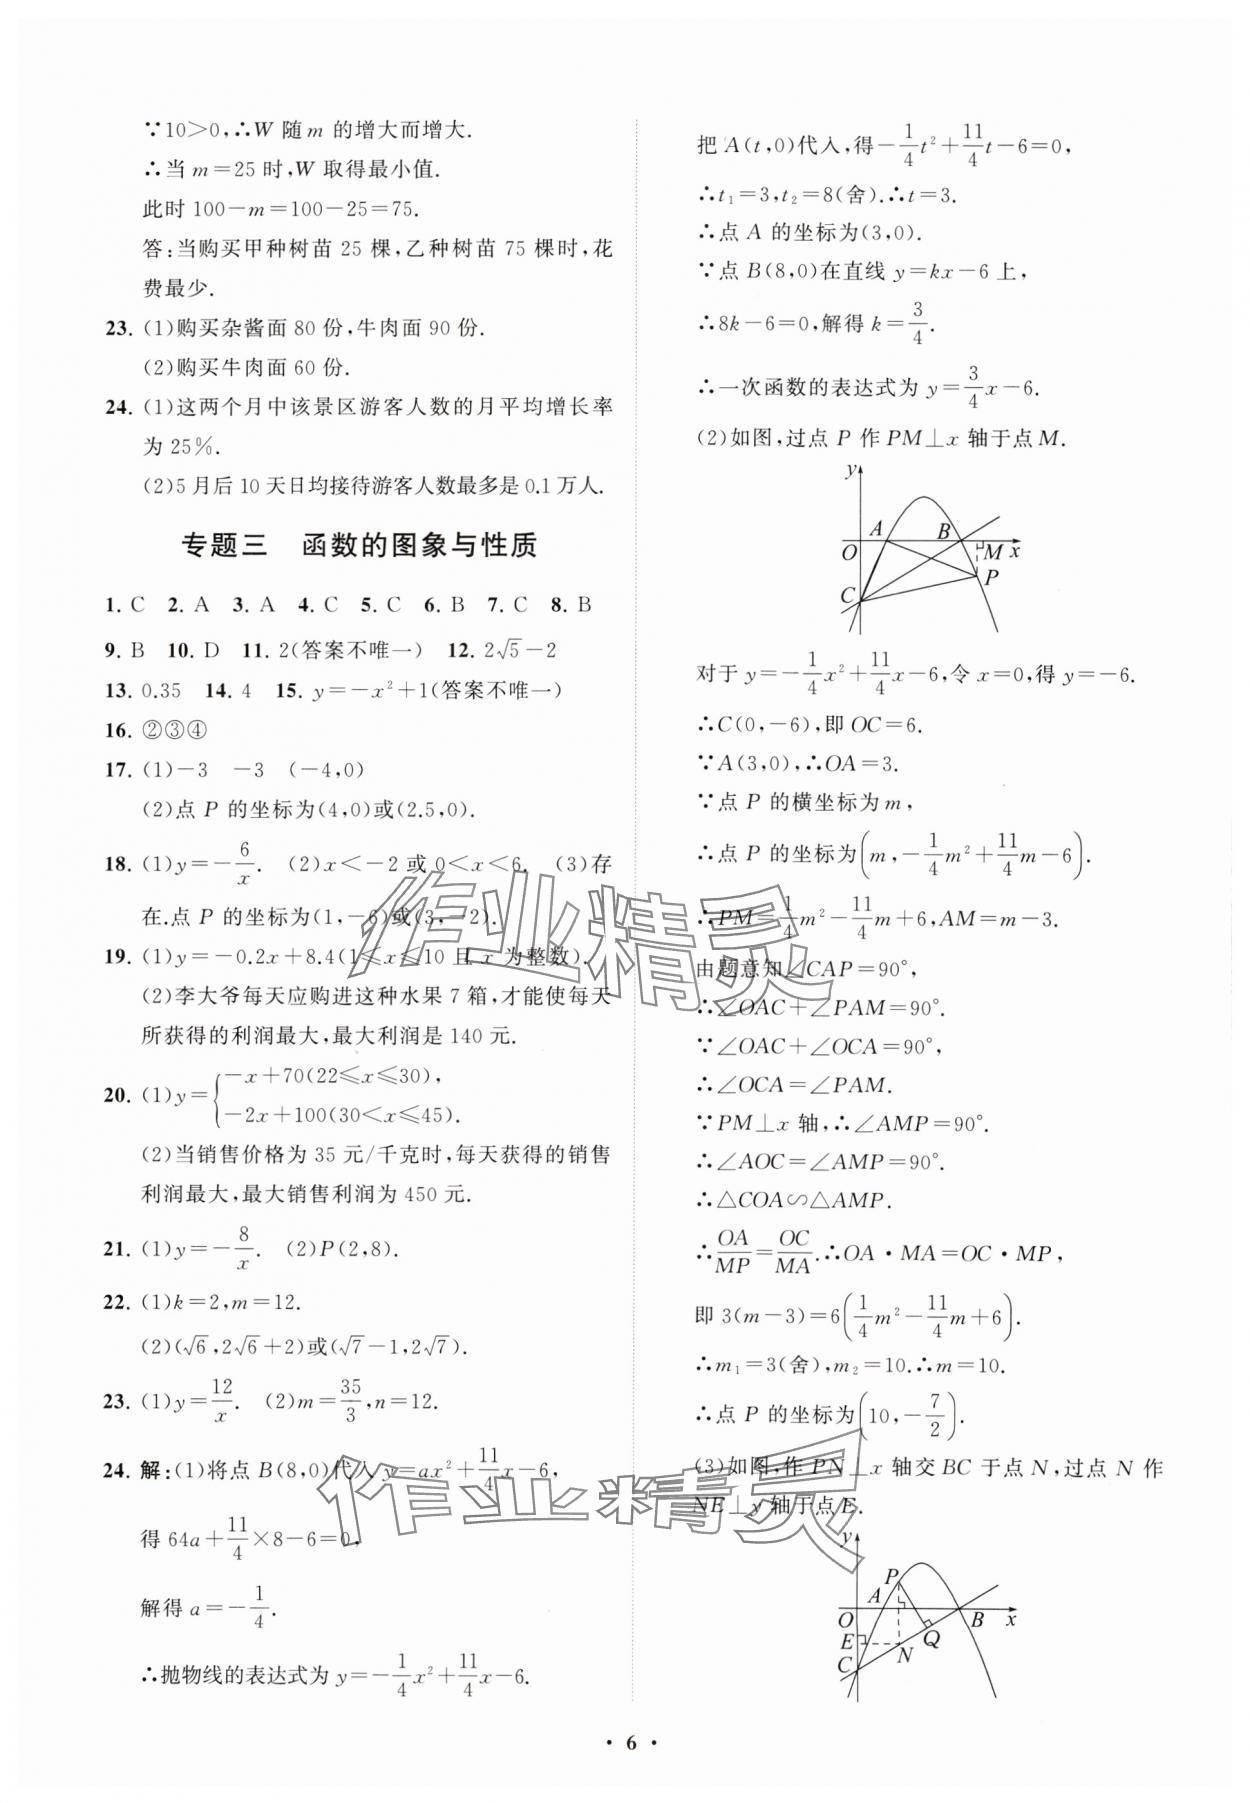 ∵10>0,∴W 随 m 的增大而增大.
∴当 m=25 时,W 取得最小值.
此时 100-m=100-25=75.
答:当购买甲种树苗 25 棵,乙种树苗 75 棵时,花
费最少.
23. (1)购买杂酱面 80 份,牛肉面 90 份.
(2)购买牛肉面 60 份.
24. (1)这两个月中该景区游客人数的月平均增长率
为 25%.
(2)5 月后 10 天日均接待游客人数最多是 0.1 万人.
专题三 函数的图象与性质
1. C 2. A 3. A 4. C 5. C 6. B 7. C 8. B
9. B 10. D 11. 2(答案不唯一) 12. 2√5-2
13. 0.35 14. 4 15. y=-x²+1(答案不唯一)
16. ②③④
17. (1)-3 -3 (-4,0)
(2)点 P 的坐标为(4,0)或(2.5,0).
18. (1)y=-6/x. (2)x<-2 或 0<x<6. (3)存
在.点 P 的坐标为(1,-6)或(3,-2).
19. (1)y=-0.2x+8.4(1≤x≤10 且 x 为整数).
(2)李大爷每天应购进这种水果 7 箱,才能使每天
所获得的利润最大,最大利润是 140 元.
20. (1)y={-x+70(22≤x≤30),
-2x+100(30<x≤45).
(2)当销售价格为 35 元/千克时,每天获得的销售
利润最大,最大销售利润为 450 元.
21. (1)y=-8/x. (2)P(2,8).
22. (1)k=2,m=12.
(2)(√6,2√6+2)或(√7-1,2√7).
23. (1)y=12/x. (2)m=35/3,n=12.
24. 解:(1)将点 B(8,0)代入 y=ax²+11/4x-6,
得 64a+11/4×8-6=0,
解得 a=-1/4.
∴抛物线的表达式为 y=-1/4x²+11/4x-6.
把 A(t,0)代入,得-1/4t²+11/4t-6=0,
∴t₁=3,t₂=8(舍).∴t=3.
∴点 A 的坐标为(3,0).
∵点 B(8,0)在直线 y=kx-6 上,
∴8k-6=0,解得 k=3/4.
∴一次函数的表达式为 y=3/4x-6.
(2)如图,过点 P 作 PM⊥x 轴于点 M.
y
A B
O M x
P
C
对于 y=-1/4x²+11/4x-6,令 x=0,得 y=-6.
∴C(0,-6),即 OC=6.
∵A(3,0),∴OA=3.
∵点 P 的横坐标为 m,
∴点 P 的坐标为(m,-1/4m²+11/4m-6).
∴PM=1/4m²-11/4m+6,AM=m-3.
由题意知∠CAP=90°,
∴∠OAC+∠PAM=90°.
∵∠OAC+∠OCA=90°,
∴∠OCA=∠PAM.
∵PM⊥x 轴,∴∠AMP=90°.
∴∠AOC=∠AMP=90°.
∴△COA∽△AMP.
∴OA/MP=OC/MA.∴OA·MA=OC·MP,
即 3(m-3)=6(1/4m²-11/4m+6).
∴m₁=3(舍),m₂=10.∴m=10.
∴点 P 的坐标为(10,-7/2).
(3)如图,作 PN⊥x 轴交 BC 于点 N,过点 N 作
NE⊥y 轴于点 E.
y
P
A
O B x
E Q
N
C
· 6 ·
作业精灵
作业精灵